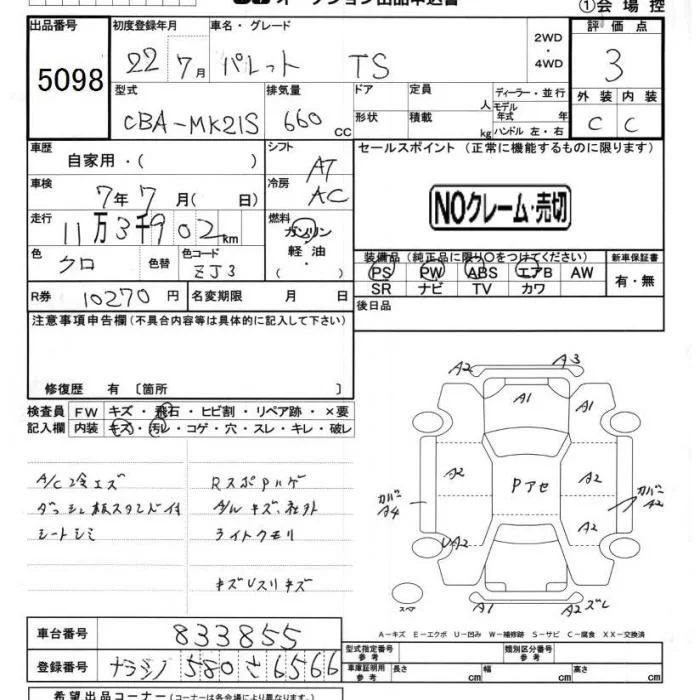 オークション出品申込書
①会場控
出品番号
5098
初度登録年月
22 7月
車名・グレード
パレット TS
2WD
・
4WD
評価点
3
型式
CBA-MK21S
排気量
660 CC
ドア
形状
定員
人
積載
kg
ディーラー・並行
モデル年式 年
ハンドル 左・右
外装 内装
C C
車歴
自家用・( )
シフト
AT
セールスポイント (正常に機能するものに限ります)
NOクレーム・売切
車検
7年7月( 日)
冷房
AC
走行
11万3千902km
燃料
ガソリン
軽・油
色
クロ
色替
色コード
ZJ3
装備品 (純正品に限り○をつけてください)
PS PW ABS エアB AW
SR ナビ TV カワ
新車保証書
有・無
R券 10270円
名変期限 月 日
後日品
注意事項申告欄 (不具合内容等は具体的に記入して下さい)
修復歴 有 〔箇所 〕
検査員
記入欄
FW キズ・飛石・ヒビ割・リペア跡・×要
内装 キズ・汚レ・コゲ・穴・スレ・キレ・破レ
A/C冷エズ
ダッシュ板スタンド付
シートシミ
RスポPハゲ
A/Wキズ、社外
ライトクモリ
キズUスリキズ
A2 A3
A1 A1
A2 Pアセ A2
カバー A4
カバー A2
A2
UA2
スペア
A1 A2ズレ
A-キズ E-エクボ U-凹み W-補修跡 S-サビ C-腐食 XX-交換済
車台番号
833855
登録番号
ナラシノ 580 さ 6566
型式指定番号
参考
類別区分番号
参考
車庫証明用
参考
長さ cm
幅 cm
高さ cm
希望出品コーナー (コーナーは各会場により異なります。)